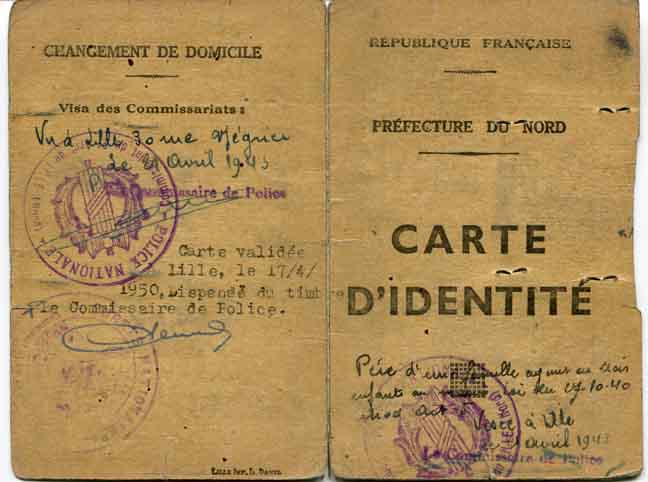 CHANGEMENT DE DOMICILE
Visa des Commissariats:
Vu à Lille 30 rue Négrier
le Avril 1943
Commissaire de Police
POLICE NATIONALE
Carte validée
Lille, le 17/4/
1950, Dispensé du timbre
le Commissaire de Police.
LILLE IMP. L. DANEL
RÉPUBLIQUE FRANÇAISE
PRÉFECTURE DU NORD
CARTE
D'IDENTITÉ
Père d'une famille ayant au
enfants loi du 27-10-40
Lille
avril 1943
Le Commissaire de Police